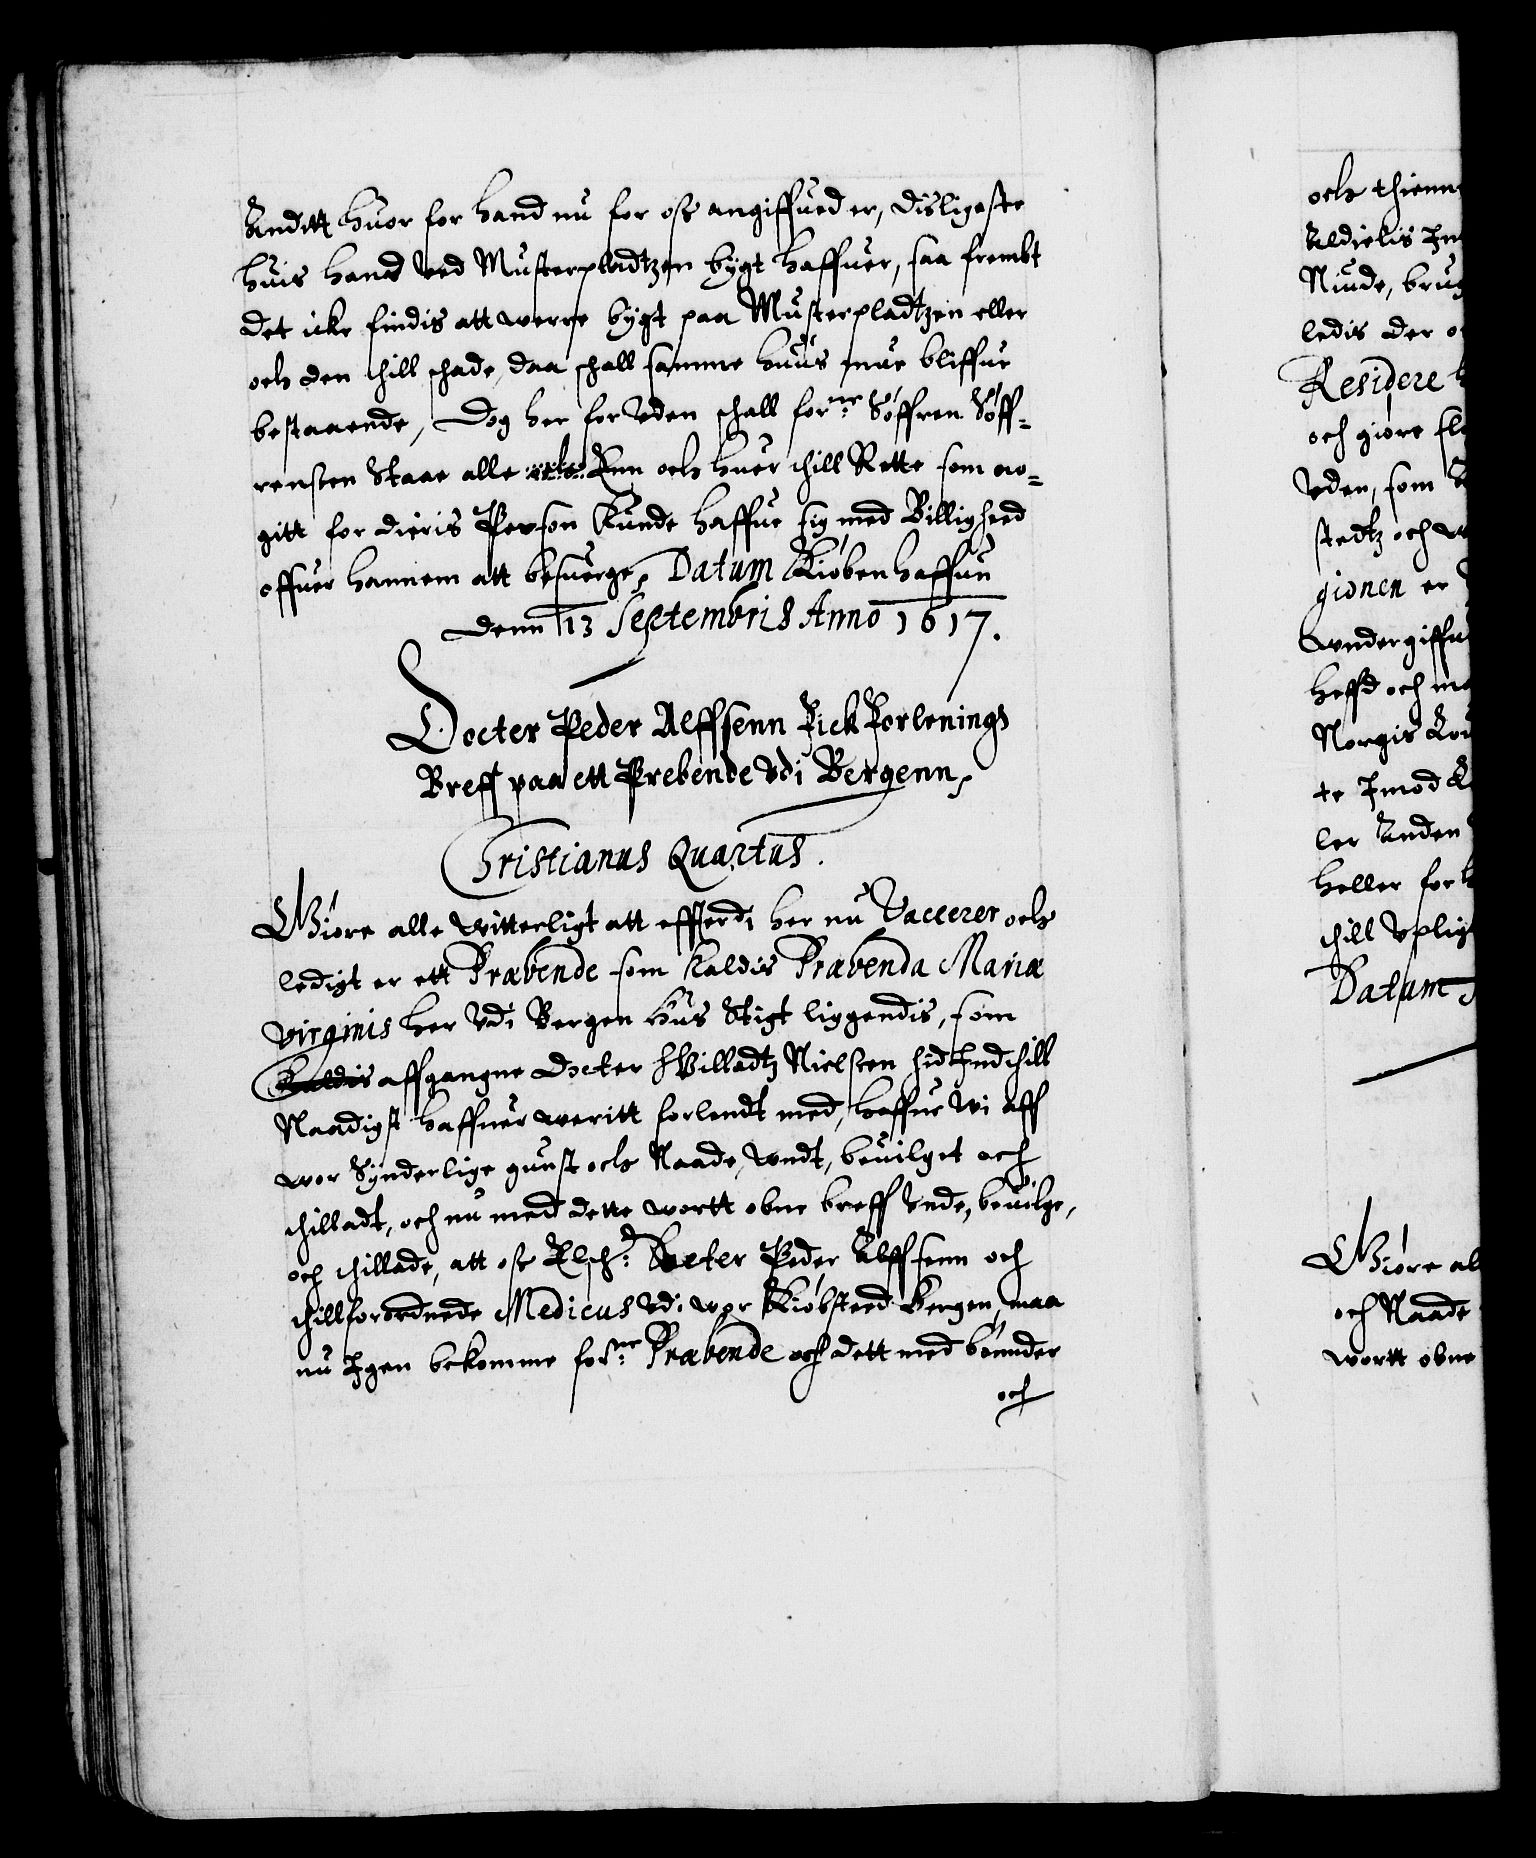 Anditt huor for hand nu for oss angiffued er, disligeste
huis hand ved Musterpladtzen bygt haffuer, saa frembt
det icke findis att werre bygt paa Musterpladtzen eller
och den till schade, daa schall samme huus maa bliffue
bestaaende, Dog her for vden schall for:ne Søffren Søff-
rensten Staae alle Enn och huer till Rette som no-
gitt for dieris Person kunde haffue sig med Billigheed
offuer hannem att besuerge, Datum Kiøbenhaffun
denn 13 Septembris Anno 1617.
Docter Peder Alffsenn Fick Forlenings
Breff paa ett Prebende vdi Bergenn,
Christianus Quartus.
Giøre alle witterligt att effterdi her nu Vacerer och
ledigt er ett Præbende som kaldis Præbenda Mariæ
virginis her vdi Bergen Hus Stigt liggendis, som
Kaldis affgangne Docter Villadtz Nielssen hid Indtill
Naadigst haffuer weritt forlendt med, haffue Wi aff
wor Synderlige gunst och Naade, vndt, beuilget och
tilladt, och nu med dette wortt obne breff Vnde, beuilge,
och tillade, att oss Elsch: Docter Peder Alffssenn och
tillforordnede Medicus vdi wor Kiøbsteed Bergen, maa
nu Igen bekomme for:ne Præbende och dett med bønder
och
och thienn
Aldielis In
Niude, brug
ledis der o
Residere h
och giøre fl
vden, som
stedtz och w
gionen er
wndergiffu
heffd och ma
Norgis Lou
te Imod
ler Anden
heller forh
till vplig
Datum
Giøre al
och Naade
wortt obne